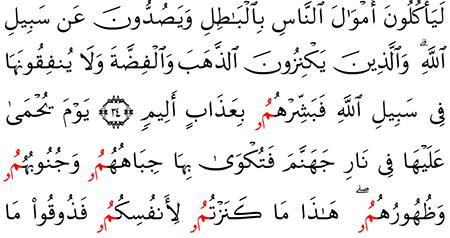 لَيَأْكُلُونَ أَمْوَٰلَ ٱلنَّاسِ بِٱلْبَٰطِلِ وَيَصُدُّونَ عَن سَبِيلِ
ٱللَّهِۗ وَٱلَّذِينَ يَكْنِزُونَ ٱلذَّهَبَ وَٱلْفِضَّةَ وَلَا يُنفِقُونَهَا
فِى سَبِيلِ ٱللَّهِ فَبَشِّرْهُمُۥ بِعَذَابٍ أَلِيمٍ ٣٤ يَوْمَ يُحْمَىٰ
عَلَيْهَا فِى نَارِ جَهَنَّمَ فَتُكْوَىٰ بِهَا جِبَاهُهُمُۥ وَجُنُوبُهُمُۥ
وَظُهُورُهُمُۥۖ هَٰذَا مَا كَنَزْتُمُۥ لِأَنفُسِكُمُۥ فَذُوقُوا۟ مَا